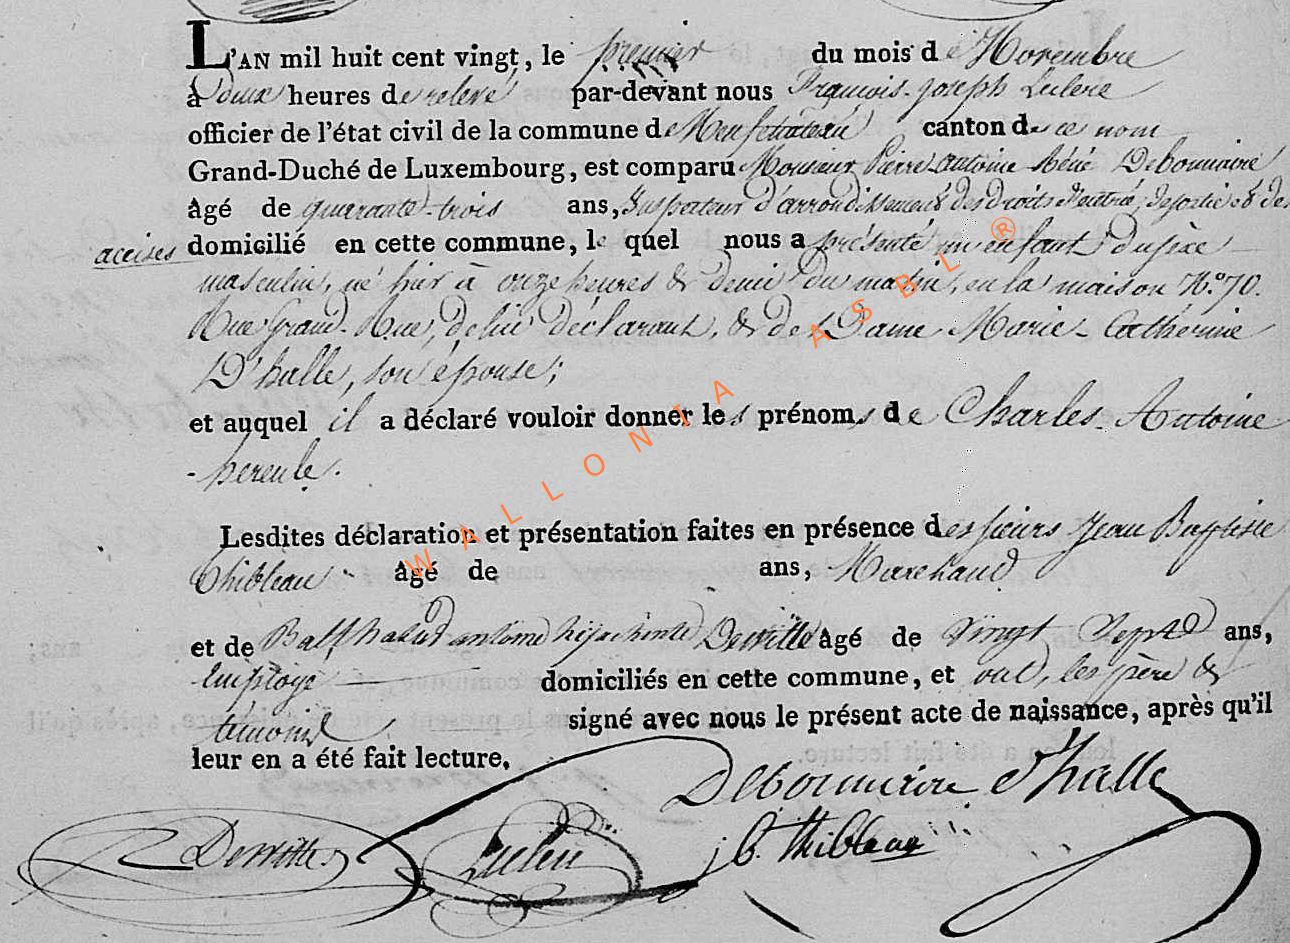 L'AN mil huit cent vingt, le premier du mois de Novembre
à deux heures de relevé par-devant nous François-Joseph
officier de l'état civil de la commune de Neufchateau canton de ce nom
Grand-Duché de Luxembourg, est comparu Monsieur Pierre-antoine Debonnaire
âgé de quarante-trois ans, Inspecteur d'arrondissement des droits d'entrée, de sortie & des
accises domicilié en cette commune, le quel nous a présenté un enfant du sèxe
masculin, né hier à onze heures & demie du matin, en la maison N.o 70.
Rue grand-Rue, de lui déclarant, & de Dame Marie-Catherine
D'halle, son épouse;
et auquel il a déclaré vouloir donner les prénoms de Charles-Antoine
Lesdites déclaration et présentation faites en présence des sieurs Jean Baptiste
Thibleau âgé de ans, Marchand
et de antoine hijachinte Dewitte âgé de Vingt Sept ans,
Employé domiciliés en cette commune, et ont, les père &
témoins signé avec nous le présent acte de naissance, après qu'il
leur en a été fait lecture.
Debonnaire d'halle
Dewitte
j b. thibleau
WALLONIA ASBL ®